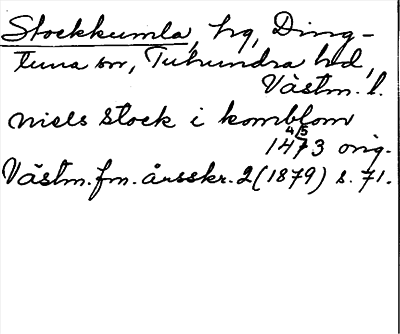 Stockkumla, hg, Ding-
tuna sn, Tuhundra hd,
Västm. l.
niels stock i komblom
4/5
1473 orig.
Västm. fm. årsskr. 2 (1879) s. 71.